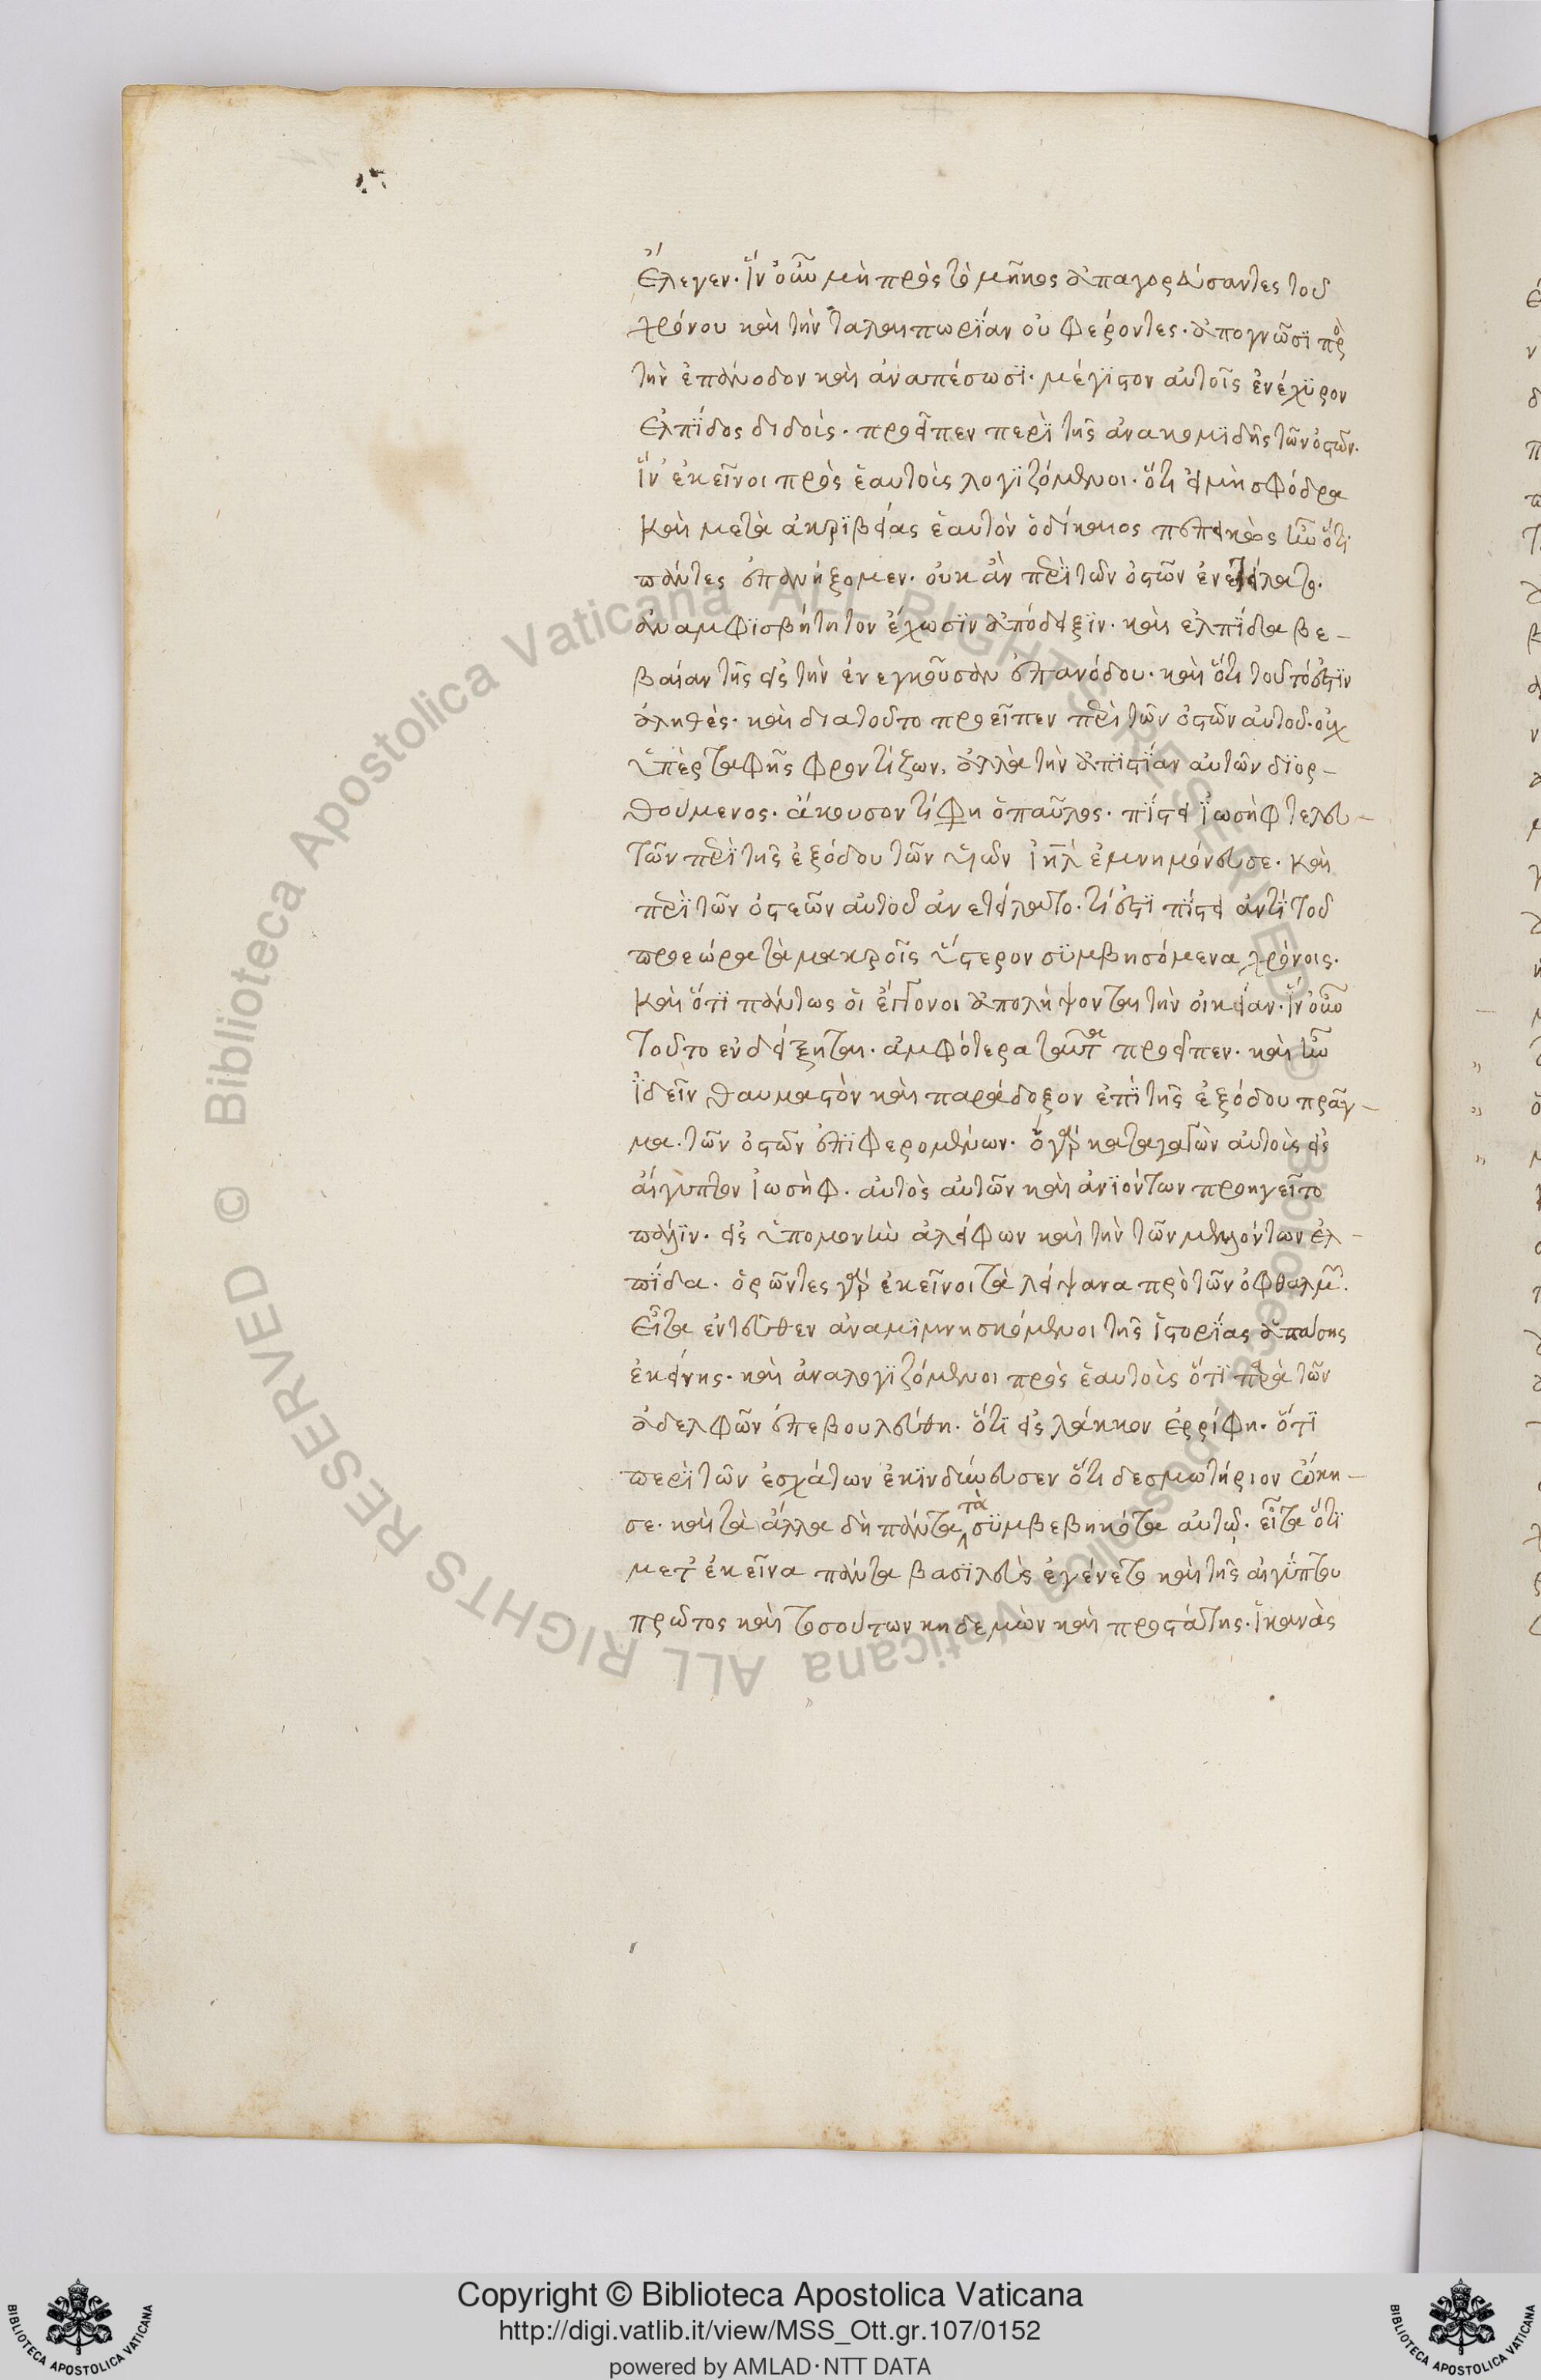 ἔλεγεν. ἵν' οὖν μὴ πρὸς τὸ μῆκος ἀπαγορεύσαντες τοῦ
χρόνου καὶ τὴν ταλαιπωρίαν οὐ φέροντες. ἀπογνῶσϊ πρὸς
τὴν ἐπάνοδον καὶ ἀναπέσωσϊ. μέγϊστον αὐτοῖς ἐνέχϋρον
ἐλπΐδος διδοὺς. προεῖπεν περὶ τῆς ἀνακομϊδῆς τῶν ὀστῶν.
ἵν' ἐκεῖνοι πρὸς ἑαυτοὺς λογϊζόμενοι. ὅτι εἰ μὴ σφόδρα
καὶ μετὰ ἀκρϊβείας ἑαυτὸν ὁ δίκαιος πεπεικὼς ἦν ὅτι
πάντες ἐπανήξομεν. οὐκ ἂν περὶ τῶν ὀστῶν ἐνετείλατο.
ἀναμφϊσβήτητον ἔχωσϊν ἀπόδειξϊν. καὶ ἐλπΐδα βε-
βαίαν τῆς εἰς τὴν ἐνεγκοῦσαν ἐπανόδου. καὶ ὅτι τοῦτό ἐστϊν
ἀληθές. καὶ διατοῦτο προεῖπεν περὶ τῶν ὀστῶν αὐτοῦ. οὐχ
ὑπὲρ ταφῆς φροντίζων, ἀλλὰ τὴν ἀπϊστΐαν αὐτῶν δϊορ-
θούμενος. ἄκουσον τί φη ὁ παῦλος. πΐστει ἰωσὴφ τελευ-
τῶν περὶ τῆς ἐξόδου τῶν υἱῶν ἰηλ ἐμνημόνευσε. καὶ
περὶ τῶν ὀστεῶν αὐτοῦ ἀνετείλατο. τί ἐστϊ πΐστει ἀντὶ τοῦ
προεώρα τὰ μακροῖς ὕστερον σϋμβησόμενα χρόνοις.
καὶ ὅτϊ πάντως οἱ ἔγγονοι ἀπολήψονται τὴν οἰκείαν. ἵν' οὖν
τοῦτο ἐνδείξηται. ἀμφότερα ταῦτα προεῖπεν. καὶ ἦν
ἰδεῖν θαυμαστὸν καὶ παράδοξον ἐπὶ τῆς ἐξόδου πρᾶγ-
μα. τῶν ὀστῶν ἐπϊφερομένων. ὁ γὰρ καταγαγὼν αὐτοὺς εἰς
αἴγυπτον ἰωσὴφ. αὐτὸς αὐτῶν καὶ ἀνϊόντων προηγεῖτο
πάλϊν. εἰς ὑπομονὴν ἀλείφων καὶ τὴν τῶν μελλόντων ἐλ-
πΐδα. ὁρῶντες γὰρ ἐκεῖνοι τὰ λείψανα πρὸ τῶν ὀφθαλμῶν.
εἶτα ἐντεῦθεν ἀναμϊμνησκόμενοι τῆς ἱστορΐας ἁπάσης
ἐκείνης. καὶ ἀναλογϊζόμενοι πρὸς ἑαυτοὺς ὅτϊ παρὰ τῶν
ἀδελφῶν ἐπεβουλεύθη. ὅτϊ εἰς λάκκον ἐρρίφη. ὅτϊ
περὶ τῶν ἐσχάτων ἐκϊνδύνευσεν ὅτι δεσμωτήριον ᾤκη-
σε. καὶ τὰ ἄλλα δὴ πάντα τὰ σϋμβεβηκότα αὐτῷ. εἶτα ὅτϊ
μετ' ἐκεῖνα πάντα βασϊλεὺς ἐγένετο καὶ τῆς αἰγΰπτου
πρῶτος καὶ τοσούτων κηδεμὼν καὶ προστάτης. ἱκανὰς
© Biblioteca Apostolica Vaticana ALL RIGHTS RESERVED © Biblioteca Apostolica Vaticana ALL RIGHTS RESERVED
Copyright © Biblioteca Apostolica Vaticana
http://digi.vatlib.it/view/MSS_Ott.gr.107/0152
powered by AMLAD·NTT DATA
BIBLIOTECA APOSTOLICA VATICANA
BIBLIOTECA APOSTOLICA VATICANA